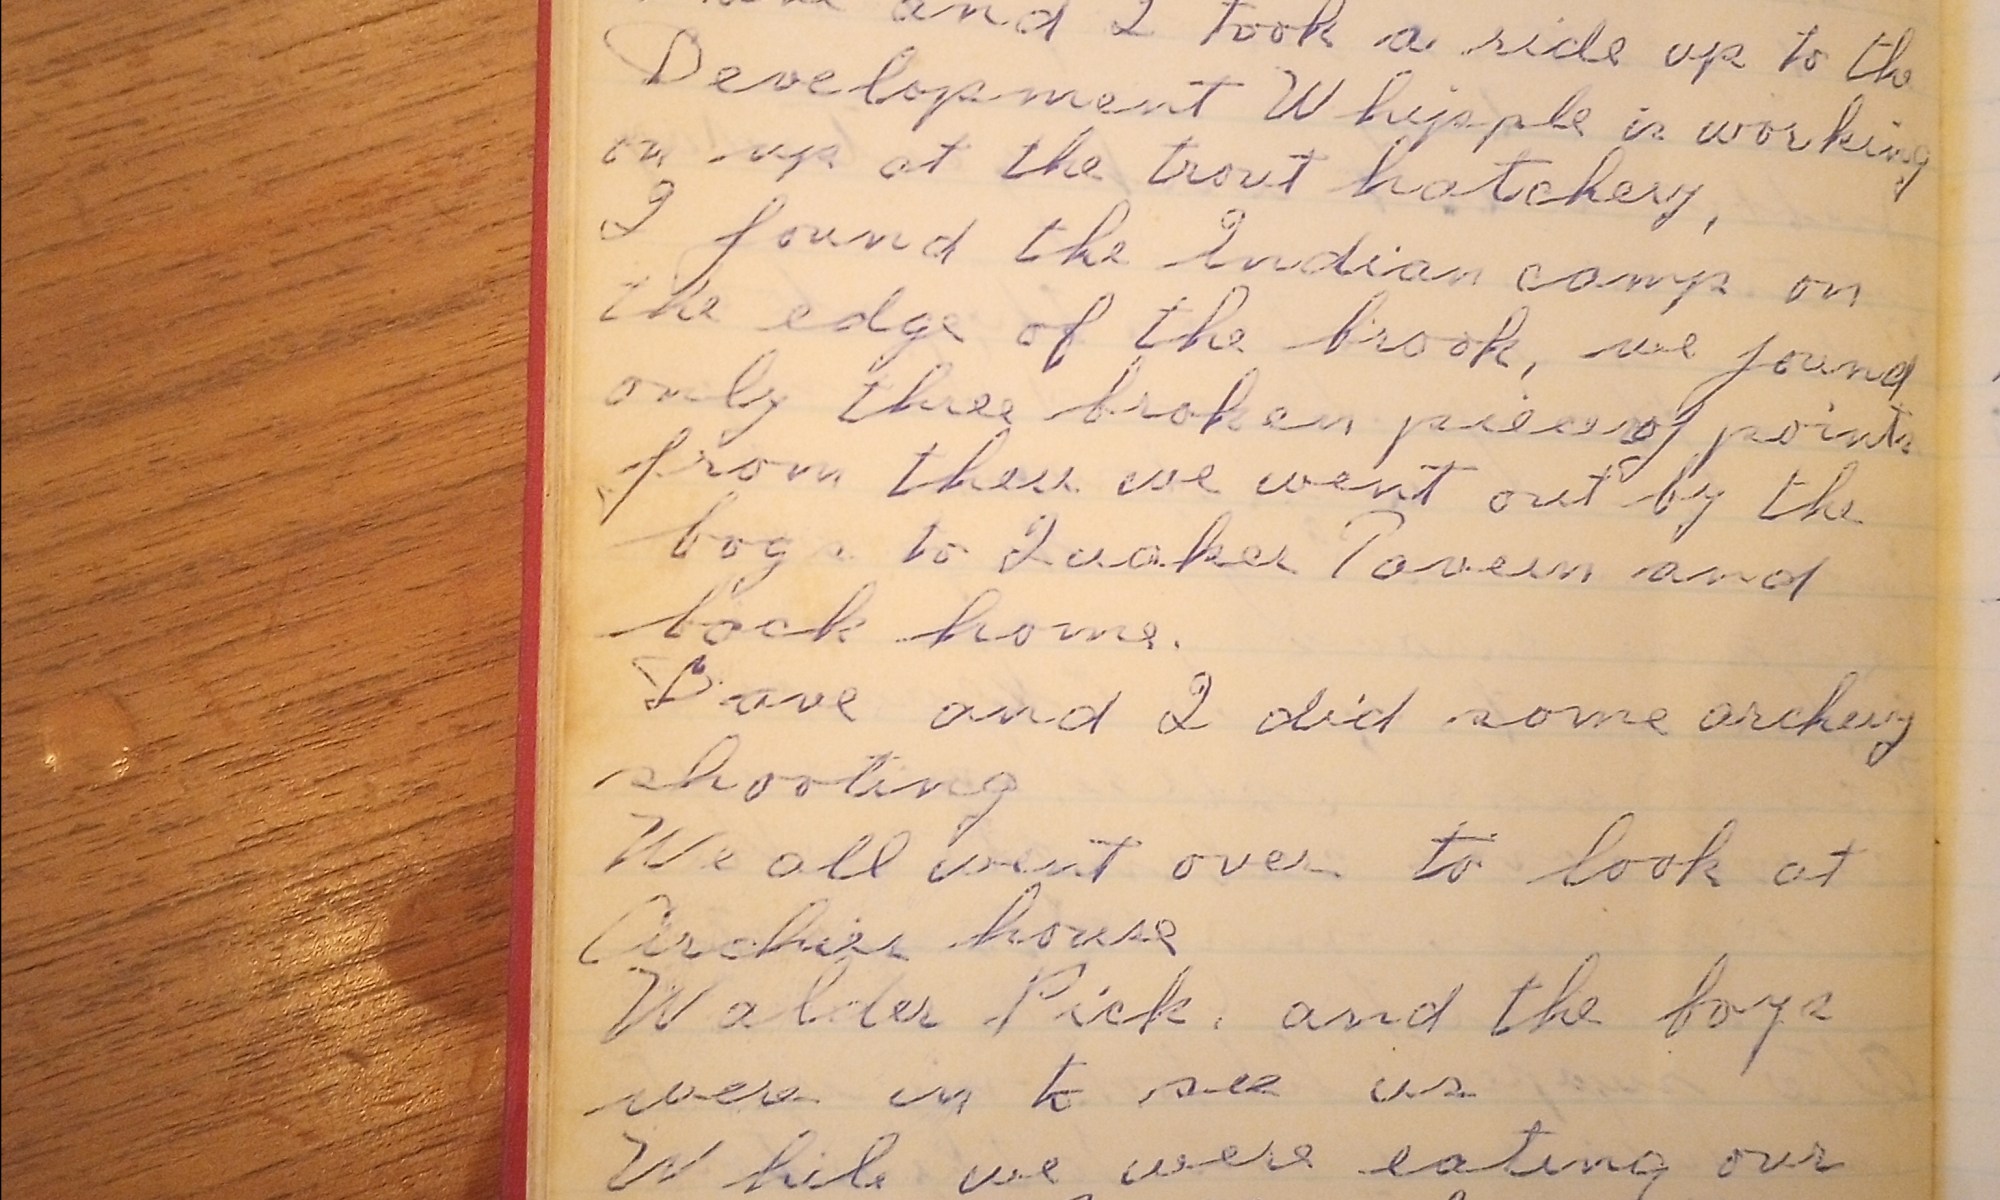 and I took a ride up to the
Development Whipple is working
on up at the trout hatchery,
I found the Indian camp on
the edge of the brook, we found
only three broken pieces of points
from there we went out by the
bogs to Quaker Tavern and
back home.
Dave and I did some archery
shooting
We all went over to look at
Archies house
Walder Pick. and the boys
were in to see us
While we were eating our